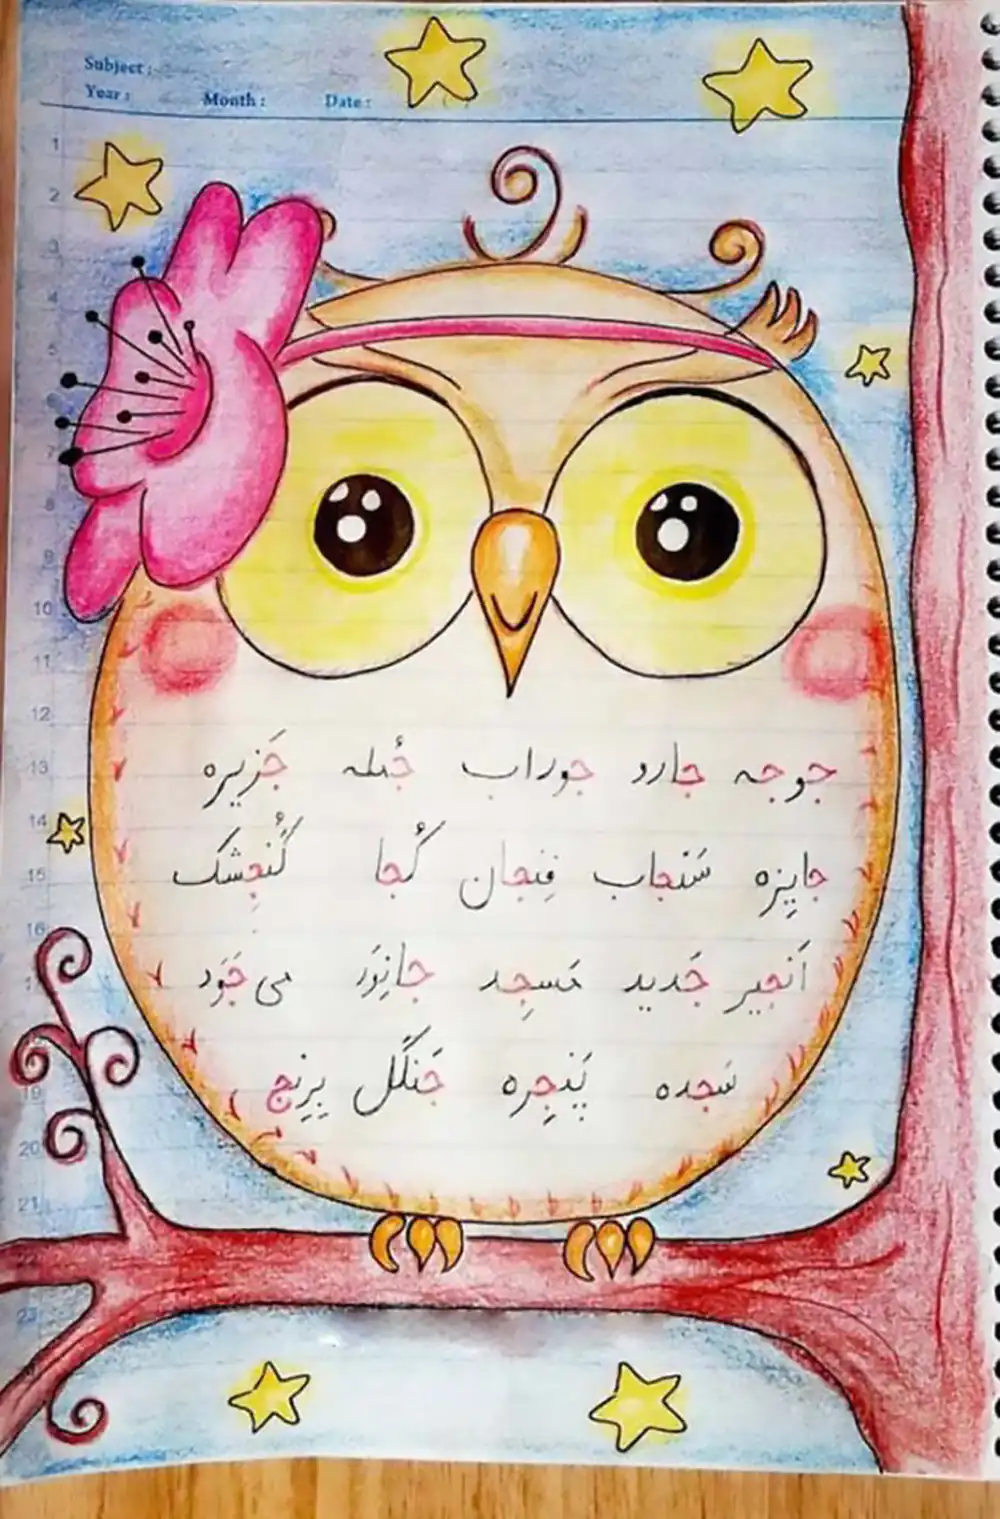 Subject :
Year : Month : Date :
1
2
3
4
5
7
8
9
10
11
12
13
14
15
16
19
20
21
22
23
جوجه جارو جوراب جُمله جَزیره
جایِزه سَنجاب فِنجان کُجا گُنجِشک
اَنجیر جَدید مَسجِد جانِوَر می جَوَد
سَجده پَنجِره جَنگَل بِرِنج